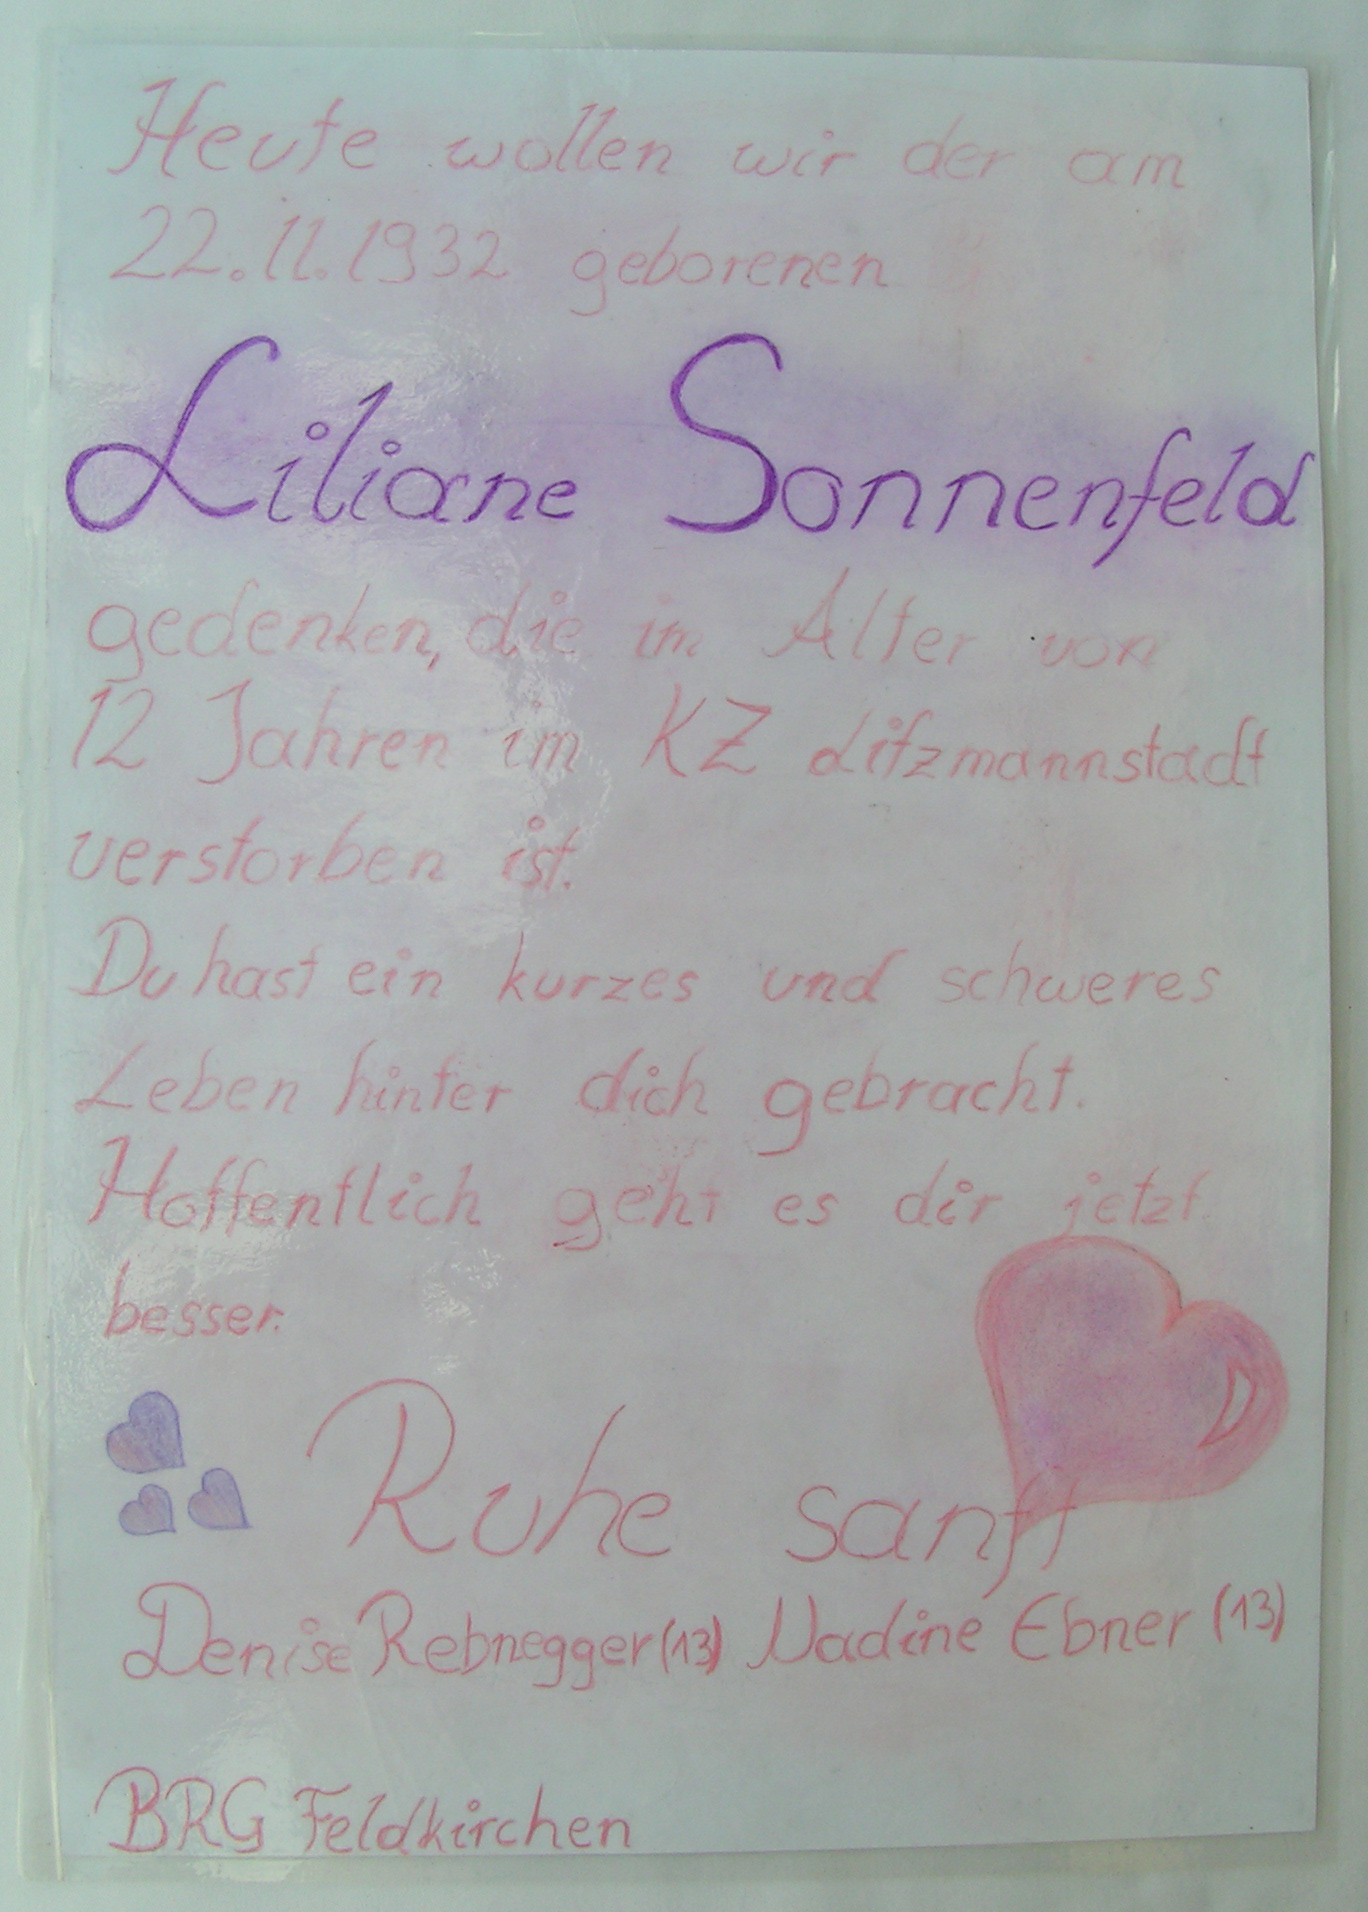 Heute wollen wir der am
22.11.1932 geborenen
Liliane Sonnenfeld
gedenken, die im Alter von
12 Jahren im KZ Litzmannstadt
verstorben ist.
Du hast ein kurzes und schweres
Leben hinter dich gebracht.
Hoffentlich geht es dir jetzt
besser.
Ruhe sanft
Denise Rebnegger (13) Nadine Ebner (13)
BRG Feldkirchen